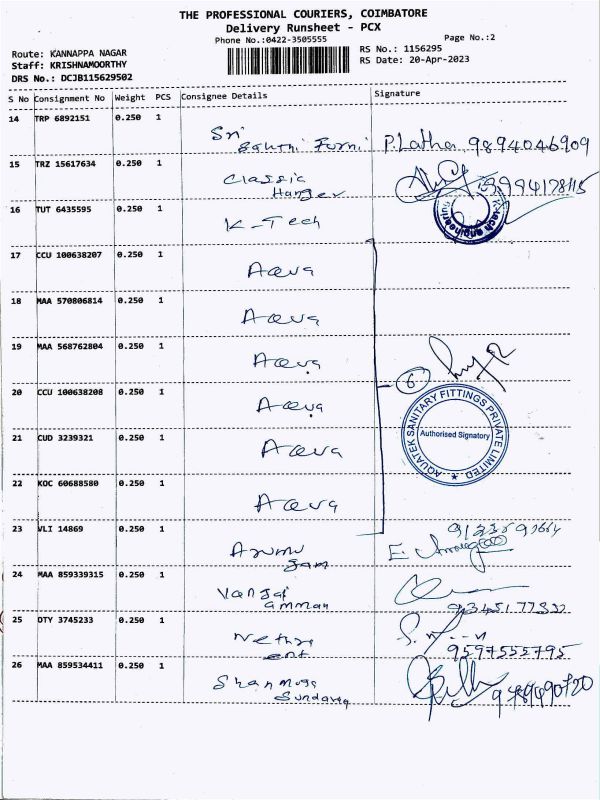 THE PROFESSIONAL COURIERS, COIMBATORE
Delivery Runsheet - PCX
Phone No.:0422-3505555
Page No.:2
Route: KANNAPPA NAGAR
RS No.: 1156295
Staff: KRISHNAMOORTHY
RS Date: 20-Apr-2023
DRS No.: DCJB115629502
S No Consignment No Weight PCS Consignee Details Signature
14 TRP 6892151 0.250 1
Sri
Furni P. Latha 9894046909
15 TRZ 15617634 0.250 1
Classic
Hanger 9994178115
16 TUT 6435595 0.250 1
K-Tech
K-tech engineering
17 CCU 100638207 0.250 1
Aqua
18 MAA 570806814 0.250 1
Aqua
19 MAA 568762804 0.250 1
Aqua
6
20 CCU 100638208 0.250 1
Aqua
AQUATEK SANITARY FITTINGS PRIVATE LIMITED
Authorised Signatory
21 CUD 3239321 0.250 1
Aqua
22 KOC 60688580 0.250 1
Aqua
23 VLI 14869 0.250 1
Arumu
Gam E.
24 MAA 859339315 0.250 1
Vanjai
amman
25 DTY 3745233 0.250 1
Nethra
ent 9597555795
26 MAA 859534411 0.250 1
Shanmuga